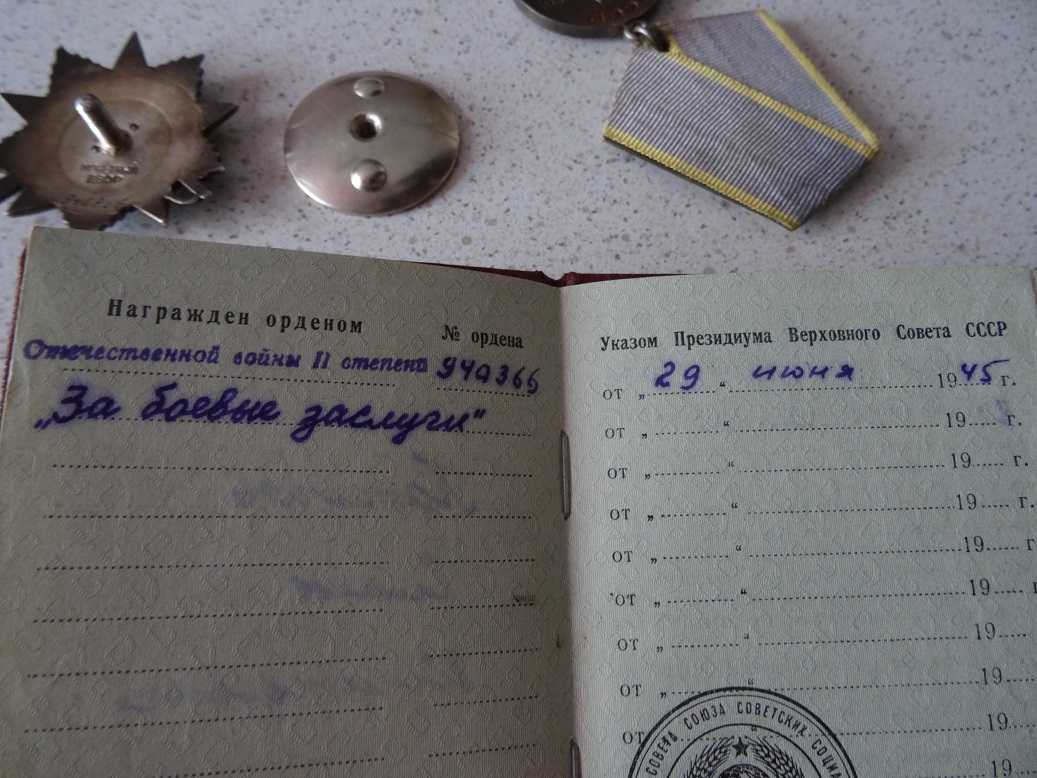 МОНЕТНЫЙ
ДВОР
Награжден орденом № ордена
Отечественной войны II степени 940366
„За боевые заслуги“
Указом Президиума Верховного Совета СССР
от „ 29 “ июня 1945 г.
от „ “ 19 г.
от „ “ 19 г.
от „ “ 19 г.
от „ “ 19 г.
от „ “ 19 г.
от „ “ 19
от „ “ 19
от 19
19
СОВЕТА СОЮЗА СОВЕТСКИХ СОЦИАЛ